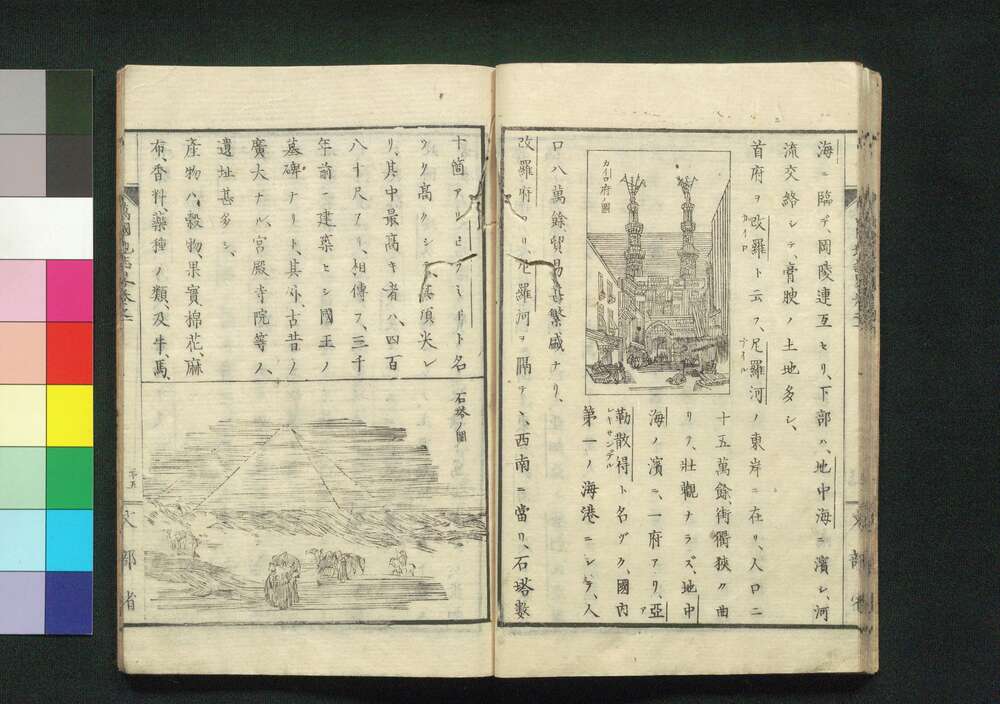 海ニ臨テ、岡陵連亙セリ、下部ハ、地中海ニ濱シ、河
流交絡シテ、膏腴ノ土地多シ、
首府ヲ改羅ト云フ、尼羅河ノ東岸ニ在リ、人口二
カイロ
ナイル
カイロ府ノ圖
十五萬餘、街衢狹ク曲
リテ、壯觀ナラズ、地中
海ノ濱ニ、一府アリ、亞
ア
勒散得ト名ヅク、國内
レキサンデル
第一ノ海港ニシテ、人
口八萬餘、貿易甚繁盛ナリ、
改羅府ヨリ、尼羅河ヲ隔テ、西南ニ當リ、石塔數
十箇アリ、ピラミードト名
ヅク、高クシテ、其頂尖レ
リ、其中最高キ者ハ、四百
八十尺アリ、相傳フ、三千
年前ニ建築セシ國王ノ
墓碑ナリト、其外、古昔ノ
廣大ナル、宮殿寺院等ノ、
遺址甚多シ、
產物ハ、穀物、果實、棉花、麻
布、香料、藥種ノ類、及牛、馬、
石塔ノ圖
文部省